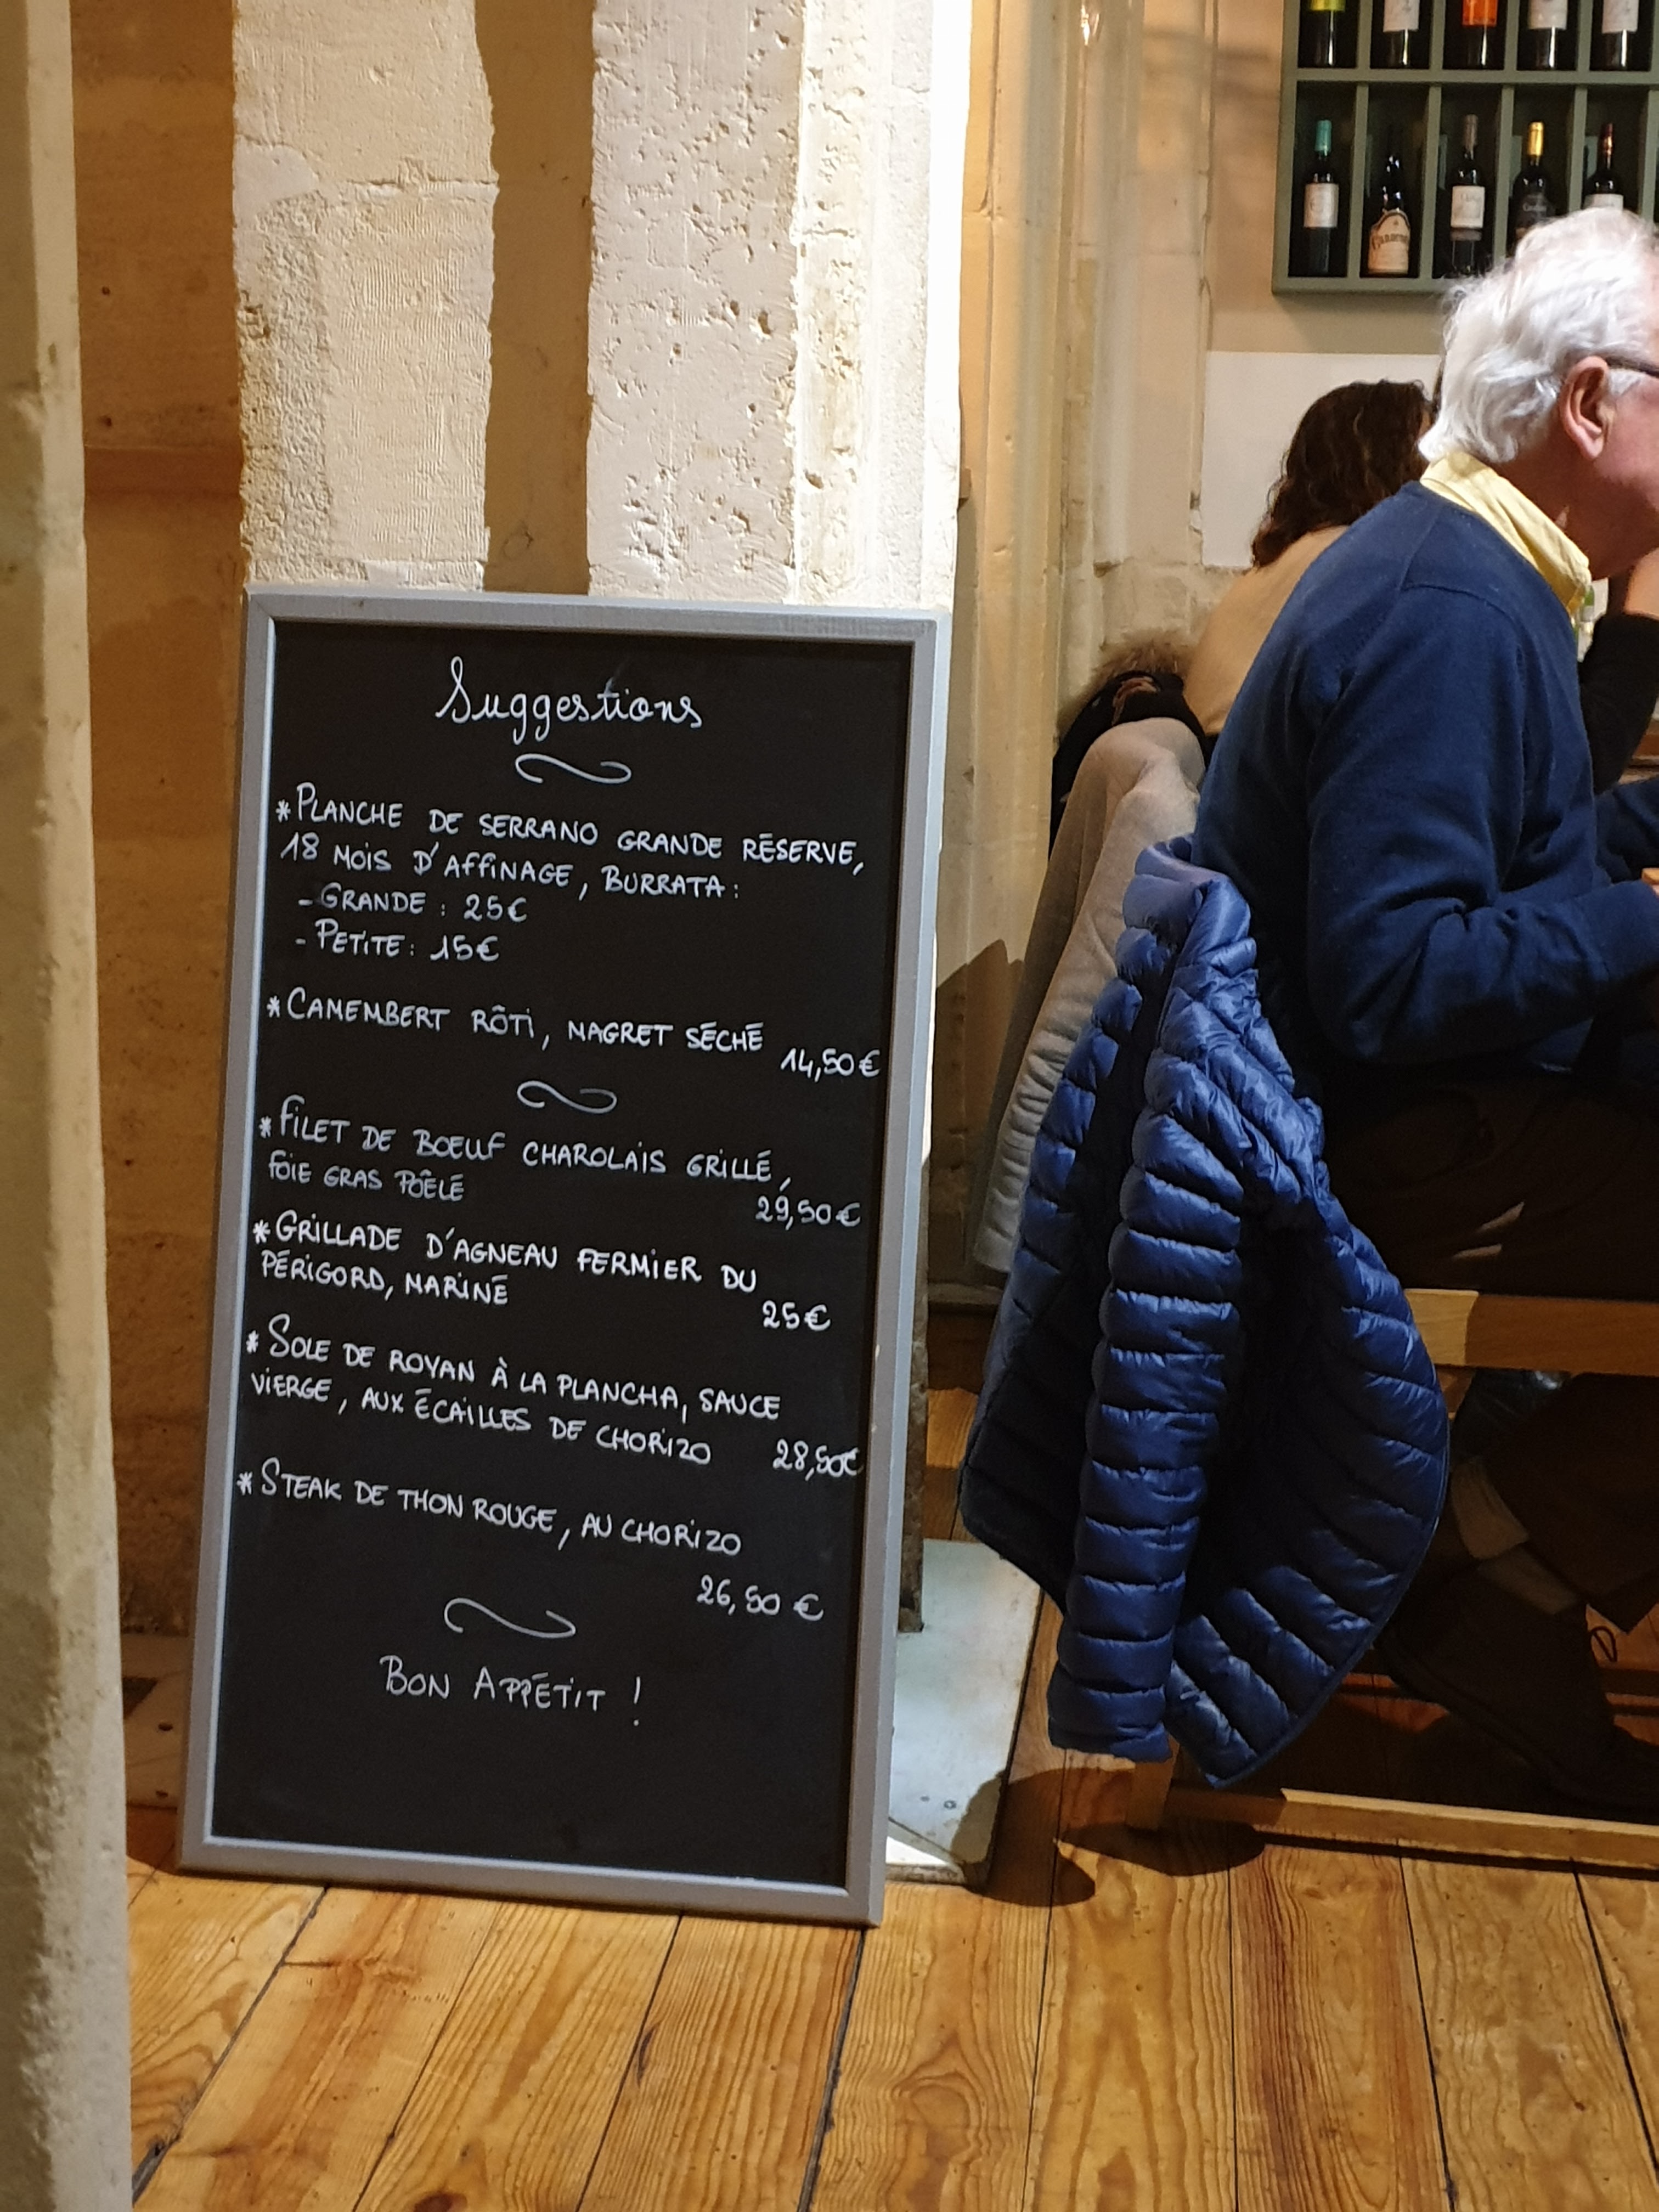 Suggestions
*PLANCHE DE SERRANO GRANDE RÉSERVE,
18 MOIS D'AFFINAGE, BURRATA :
- GRANDE : 25€
- PETITE : 15€
*CAMEMBERT RÔTI, MAGRET SÉCHÉ
14,50€
*FILET DE BOEUF CHAROLAIS GRILLÉ,
FOIE GRAS POÊLÉ
29,50€
*GRILLADE D'AGNEAU FERMIER DU
PÉRIGORD, MARINÉ
25€
*SOLE DE ROYAN À LA PLANCHA, SAUCE
VIERGE, AUX ÉCAILLES DE CHORIZO 28,50€
*STEAK DE THON ROUGE, AU CHORIZO
26,50 €
BON APPÉTIT !